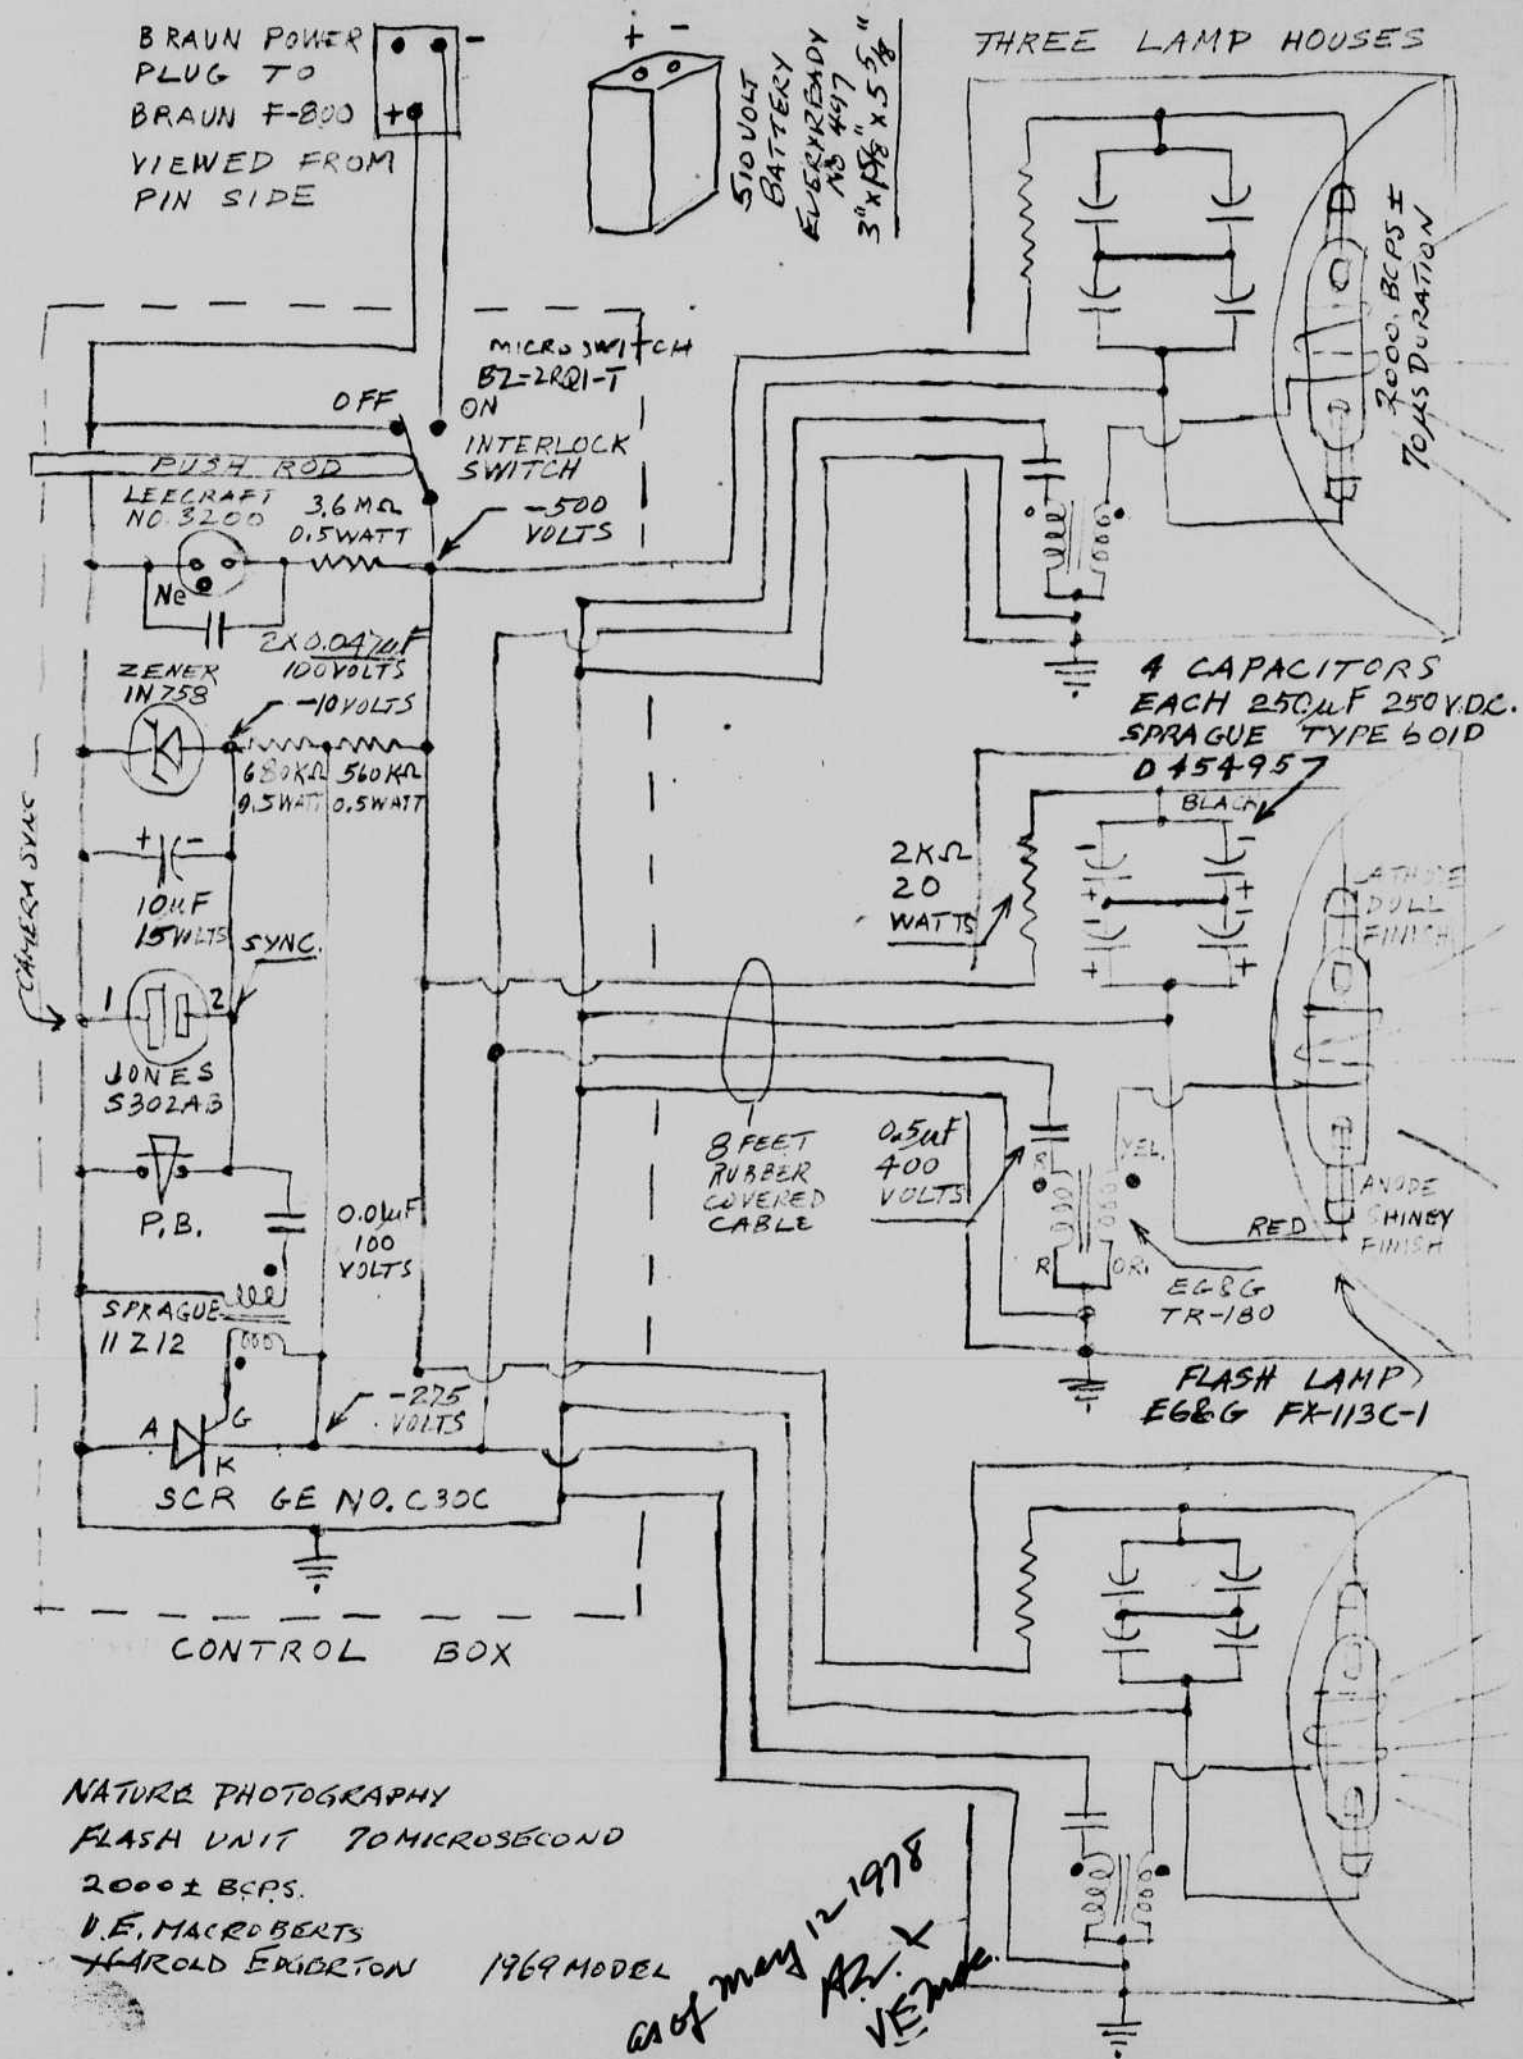 BRAUN POWER
PLUG TO
BRAUN F-800
VIEWED FROM
PIN SIDE
-
+
+ -
510 VOLT
BATTERY
EVERYREADY
NO 497
THREE LAMP HOUSES
2000. BCPS ±
70 µS DURATION
MICROSWITCH
BZ-2RQ1-T
OFF
ON
INTERLOCK
SWITCH
PUSH ROD
LEECRAFT
NO. 3200
3.6 MΩ
0.5 WATT
-500
VOLTS
Ne
2X0.047µF
100 VOLTS
ZENER
1N758
-10 VOLTS
680KΩ
0.5 WATT
560KΩ
0.5 WATT
+ -
10µF
15 VOLTS
SYNC.
CAMERA SYNC
1 2
JONES
S302AB
P.B.
0.01µF
100
VOLTS
SPRAGUE
11Z12
-275
VOLTS
A G
K
SCR GE NO. C30C
CONTROL BOX
4 CAPACITORS
EACH 250µF 250 V.DC.
SPRAGUE TYPE 601D
D454957
BLACK
- -
+ +
- -
+ +
2KΩ
20
WATTS
CATHODE
DULL
FINISH
8 FEET
RUBBER
COVERED
CABLE
0.5µF
400
VOLTS
R YEL.
R OR.
RED
ANODE
SHINEY
FINISH
EG&G
TR-180
FLASH LAMP
EG&G FX-113C-1
NATURE PHOTOGRAPHY
FLASH UNIT 70 MICROSECOND
2000 ± BCPS.
V.E. MACROBERTS
HAROLD EDGERTON 1969 MODEL
as of may 12 1978